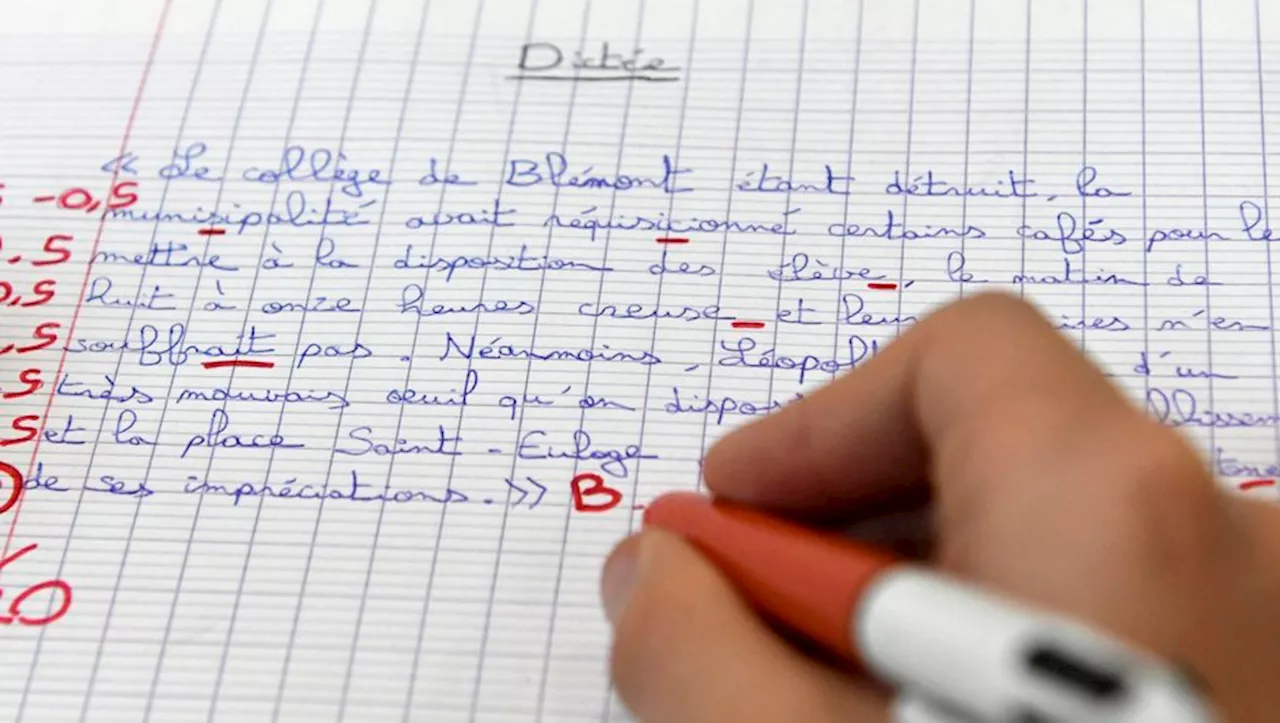 Dictée
« Le collège de Blémont étant détruit, la
-0,5
munisipalité avait réquisicionné certains cafés pour le
.5 mettre à la disposition des élève, le matin de
0,5 huit à onze heures creuse et leur n'en
,5 souffrait pas. Néanmoins, Léopol d'un
5 très mauvais oeuil qu'on dispos llissem
5 et la place Saint-Euloge tone
de ses impréciations. » B
0